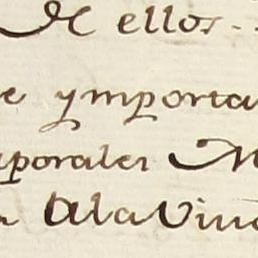 De ellos.
e ymporta
porales M
Ala Vin